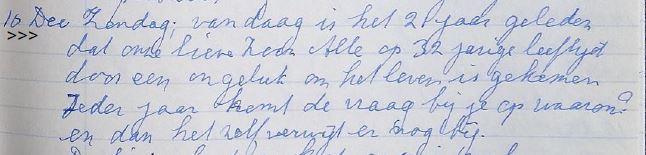 10 Dec Zondag; vandaag is het 21 jaar geleden
>>> dat onze lieve zoon Alle op 32 jarige leeftijd
door een ongeluk om het leven is gekomen
Ieder jaar komt de vraag bij je op waarom?
en dan het zelfverwijt er nog bij.